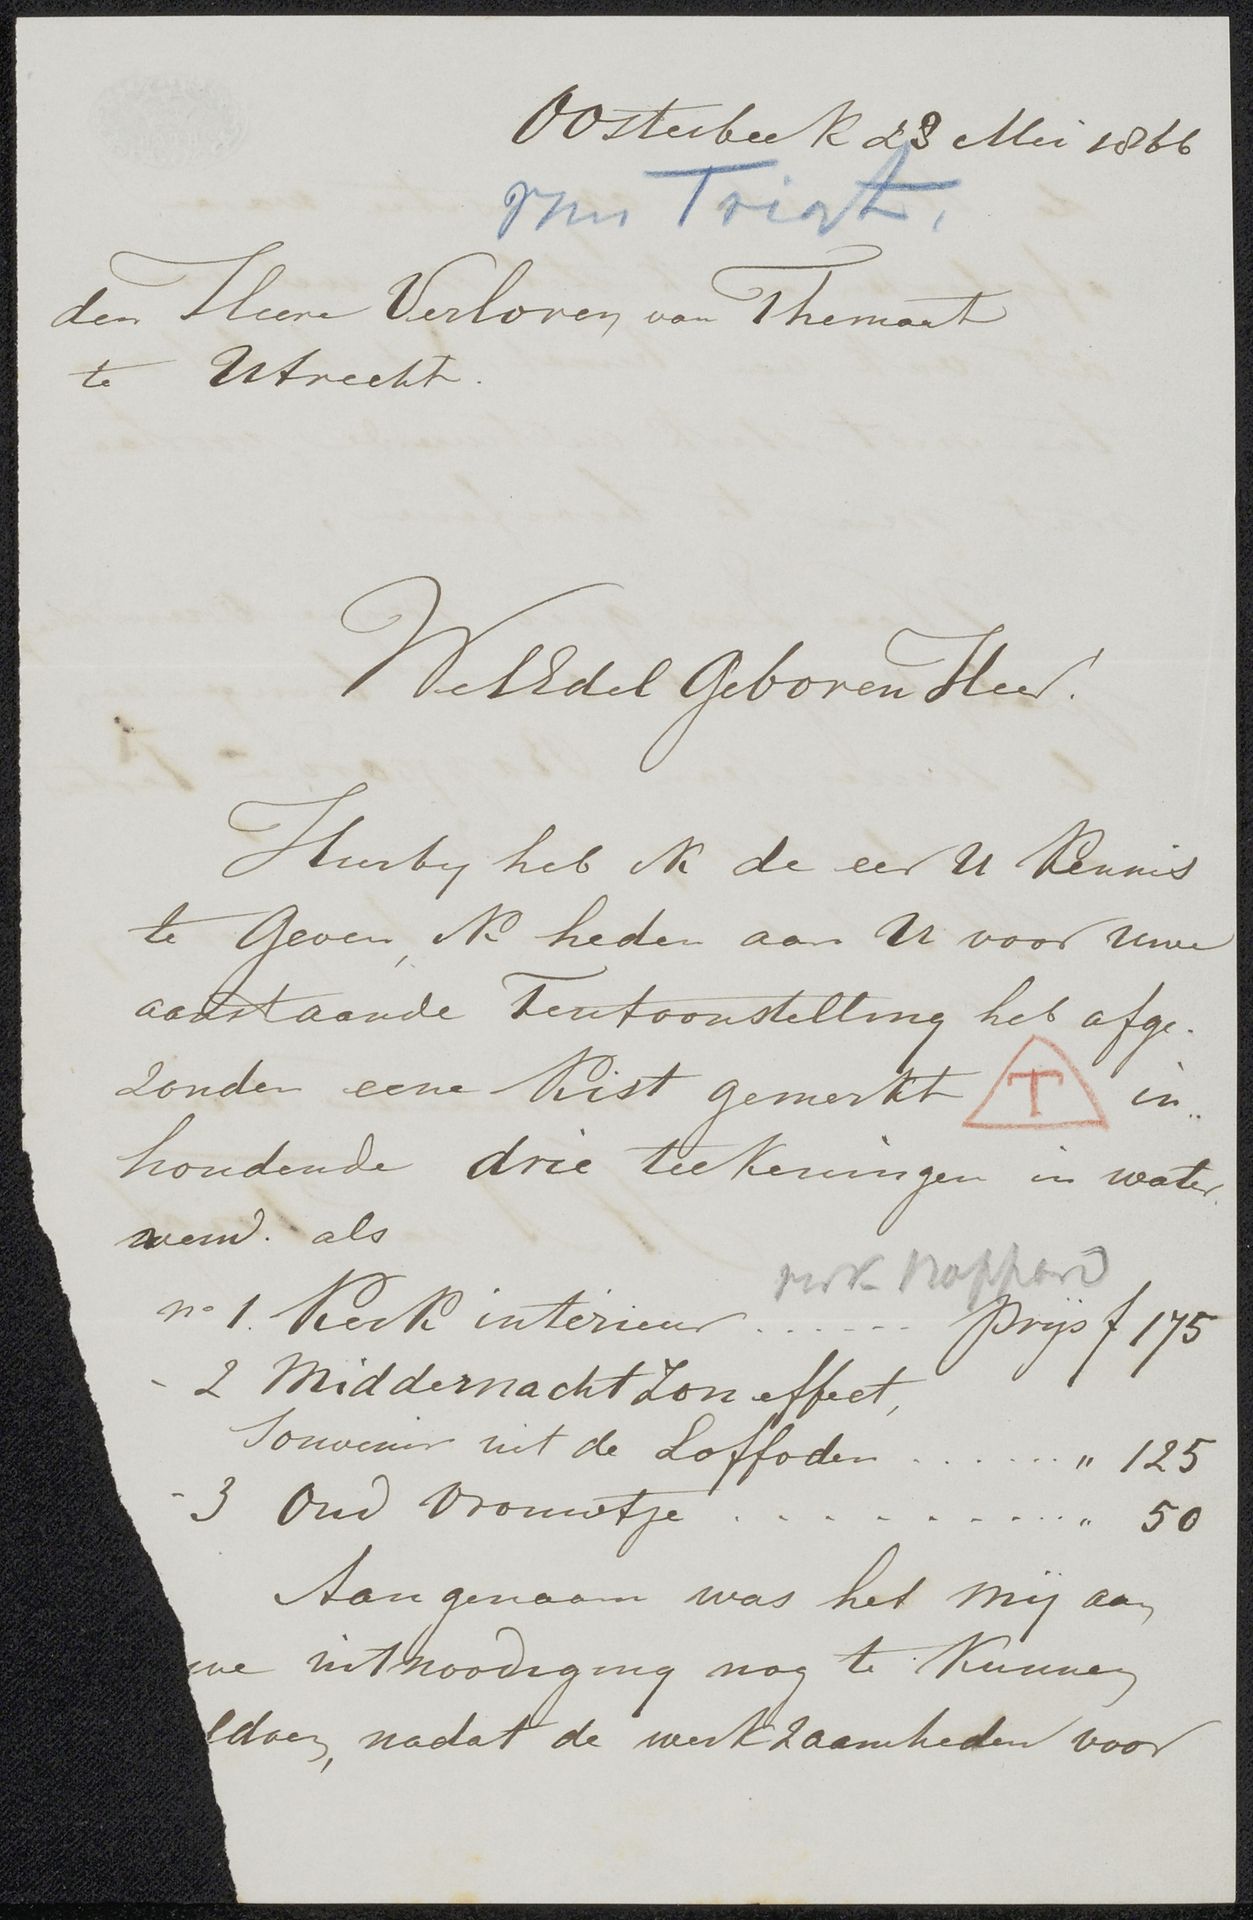 Oosterbeek 23 Mei 1866
van Trigt.
den Heere Verloren van Themaat
te Utrecht.
WelEdel Geboren Heer.
Hierby heb ik de eer U kennis
te geven, ik heden aan U voor uwe
aanstaande Tentoonstelling heb afge-
zonden eene Kist gemerkt T in-
houdende drie teekeningen in water
verw. als
no 1. Kerk interieur ...... Prijs f 175
- 2 Middernacht Zon effect,
Souvenir uit de Loffoden ....... " 125
- 3 Oud vrouwtje .......... " 50
Aangenaam was het mij aan
we uitnoodiging nog te kunnen
ldoen, nadat de werkzaamheden voor